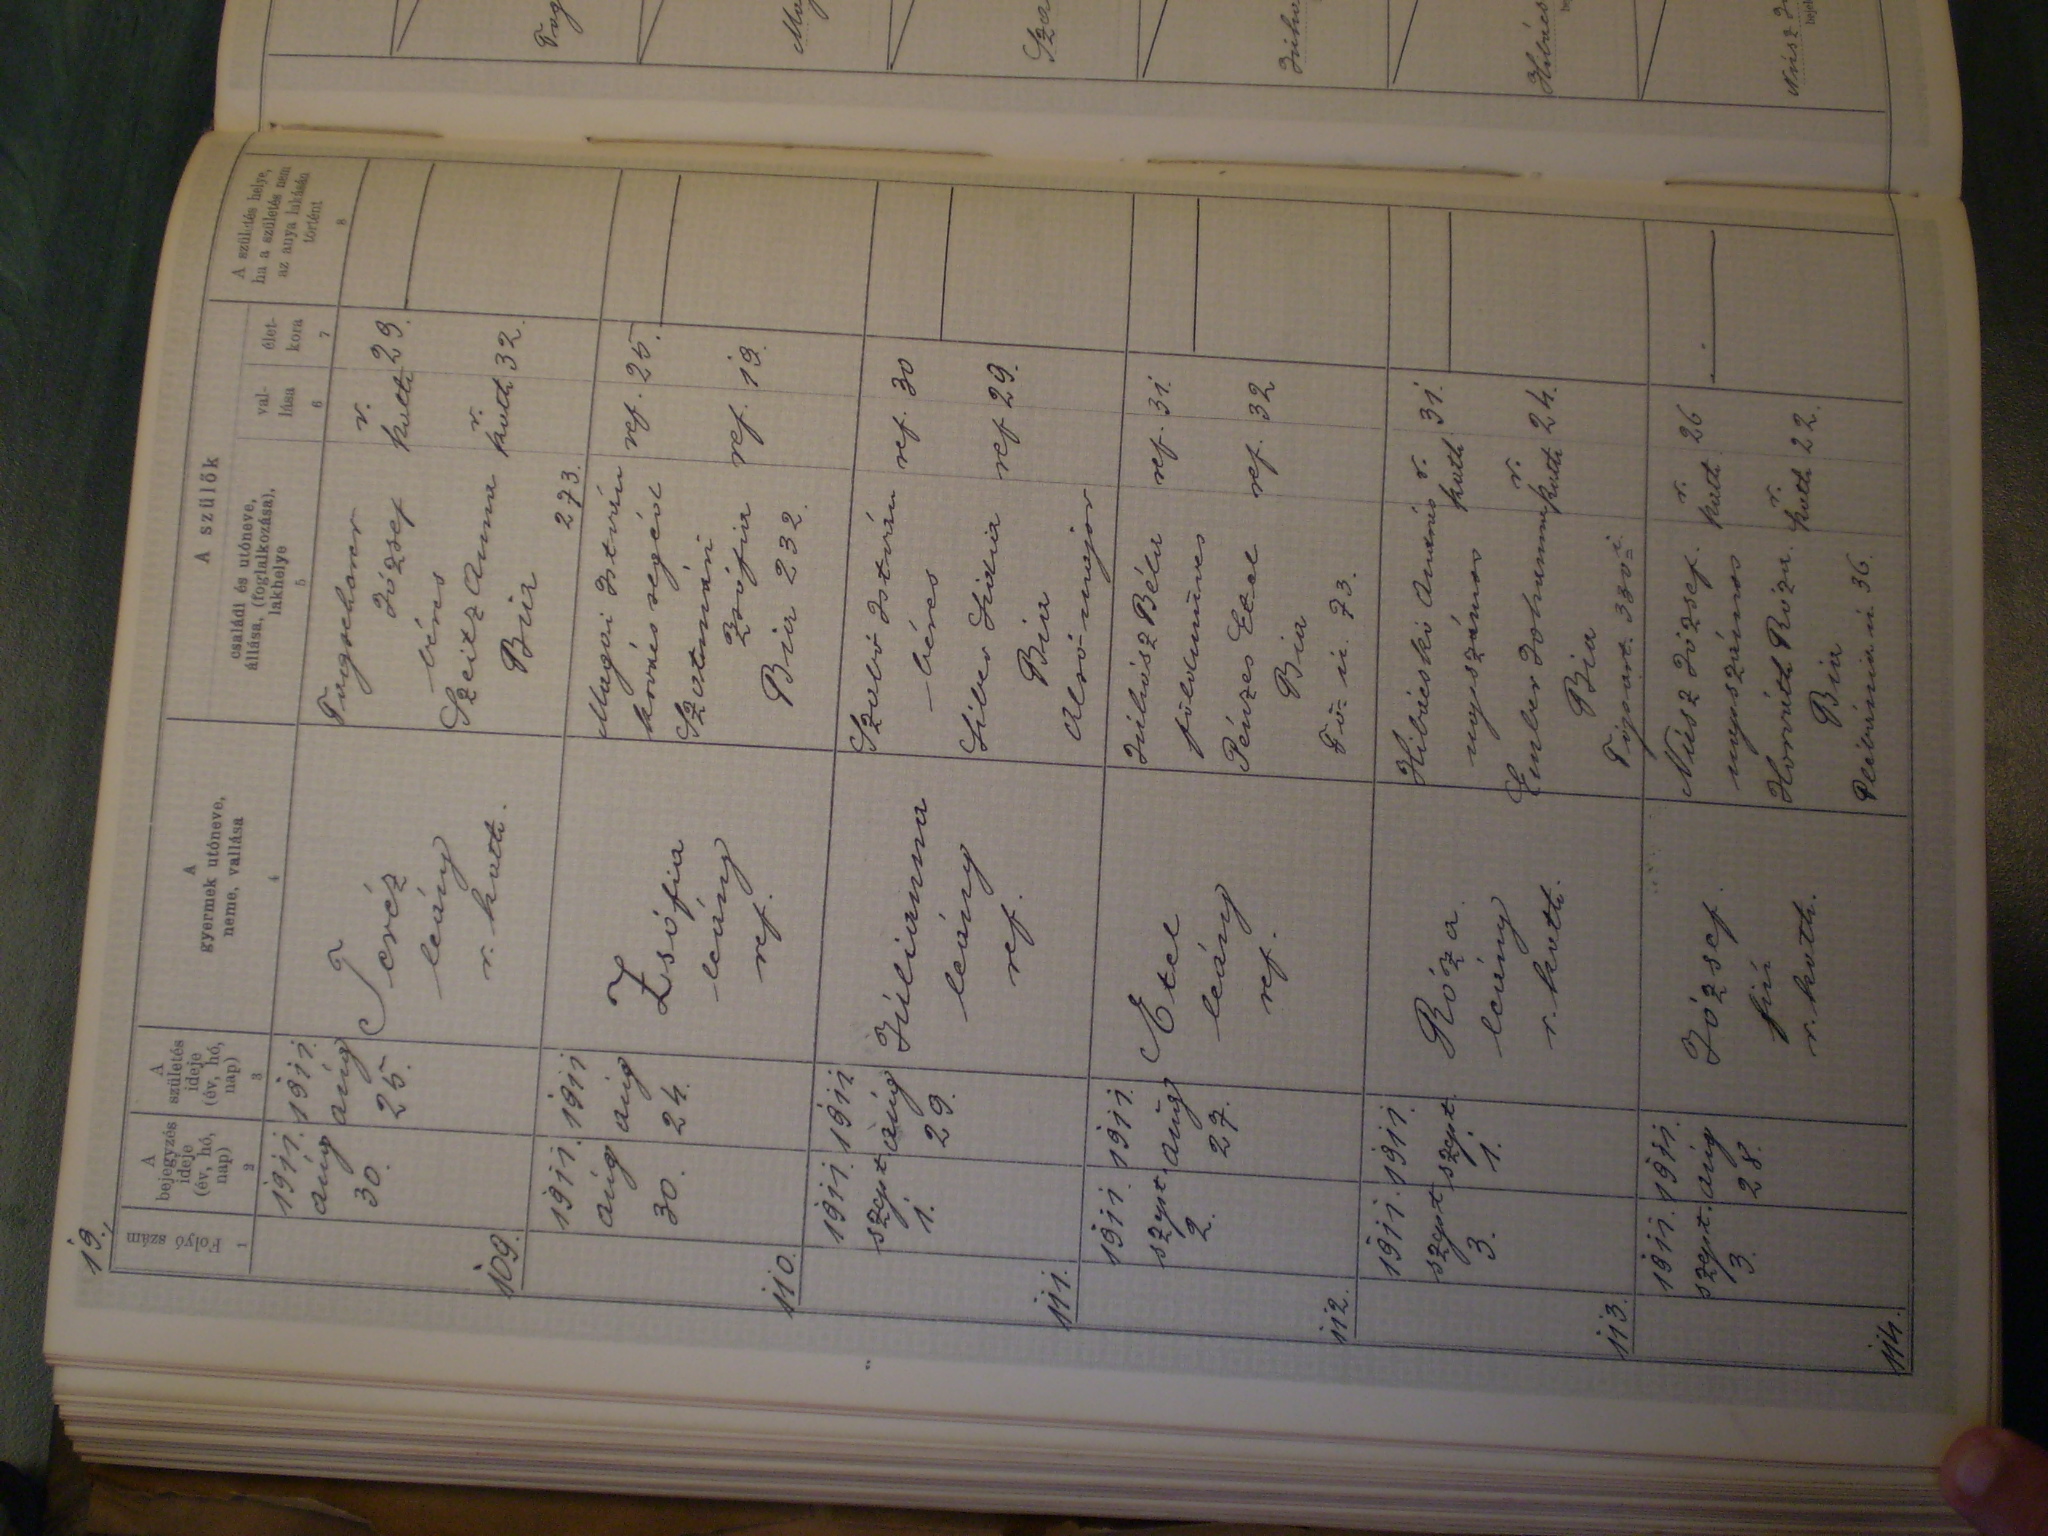 19.
Folyó szám
A bejegyzés ideje (év, hó, nap)
A születés ideje (év, hó, nap)
A gyermek utóneve, neme, vallása
A szülők
családi és utóneve, állása, (foglalkozása), lakhelye
vallása
életkora
A születés helye, ha a születés nem az anya lakásán történt
1 2 3 4 5 6 7 8
109.
1911. aug 30.
1911. aug 25.
Teréz
leány
r. kath.
József r. kath 29.
béres
Szeitz Anna r. kath 32.
Bia
273.
110.
1911. aug 30.
1911 aug 24.
Zsófia
leány
ref.
Magai István ref. 25.
kovács segéd
Szatmári
Zsófia ref. 19.
Bia 232.
111.
1911. szept 1.
1911 aug 29.
Júlianna
leány
ref.
Szabó István ref. 30
béres
Líbor Lidia ref 29.
Bia
Alsómajor
112.
1911. szept. 2.
1911. aug 27.
Etel
leány
ref.
Juhász Béla ref. 31.
földműves
Pénzes Etel ref. 32
Bia
Fő u. 73.
113.
1911. szept 3.
1911. szept. 1.
Róza.
leány
r. kath.
Hibácskó András r. kath 31.
napszámos
Ember Johanna r. kath 24.
Bia
114.
1911. szept. 3.
1911. aug 28.
József.
fiú
r. kath.
Nűsz József. r. kath. 26
napszámos
Horváth Róza. r. kath 22.
Bia
Plébánia u. 36.